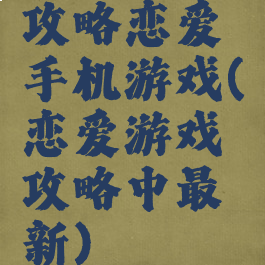 攻略恋爱
手机游戏(
恋爱游戏
攻略中最
新)